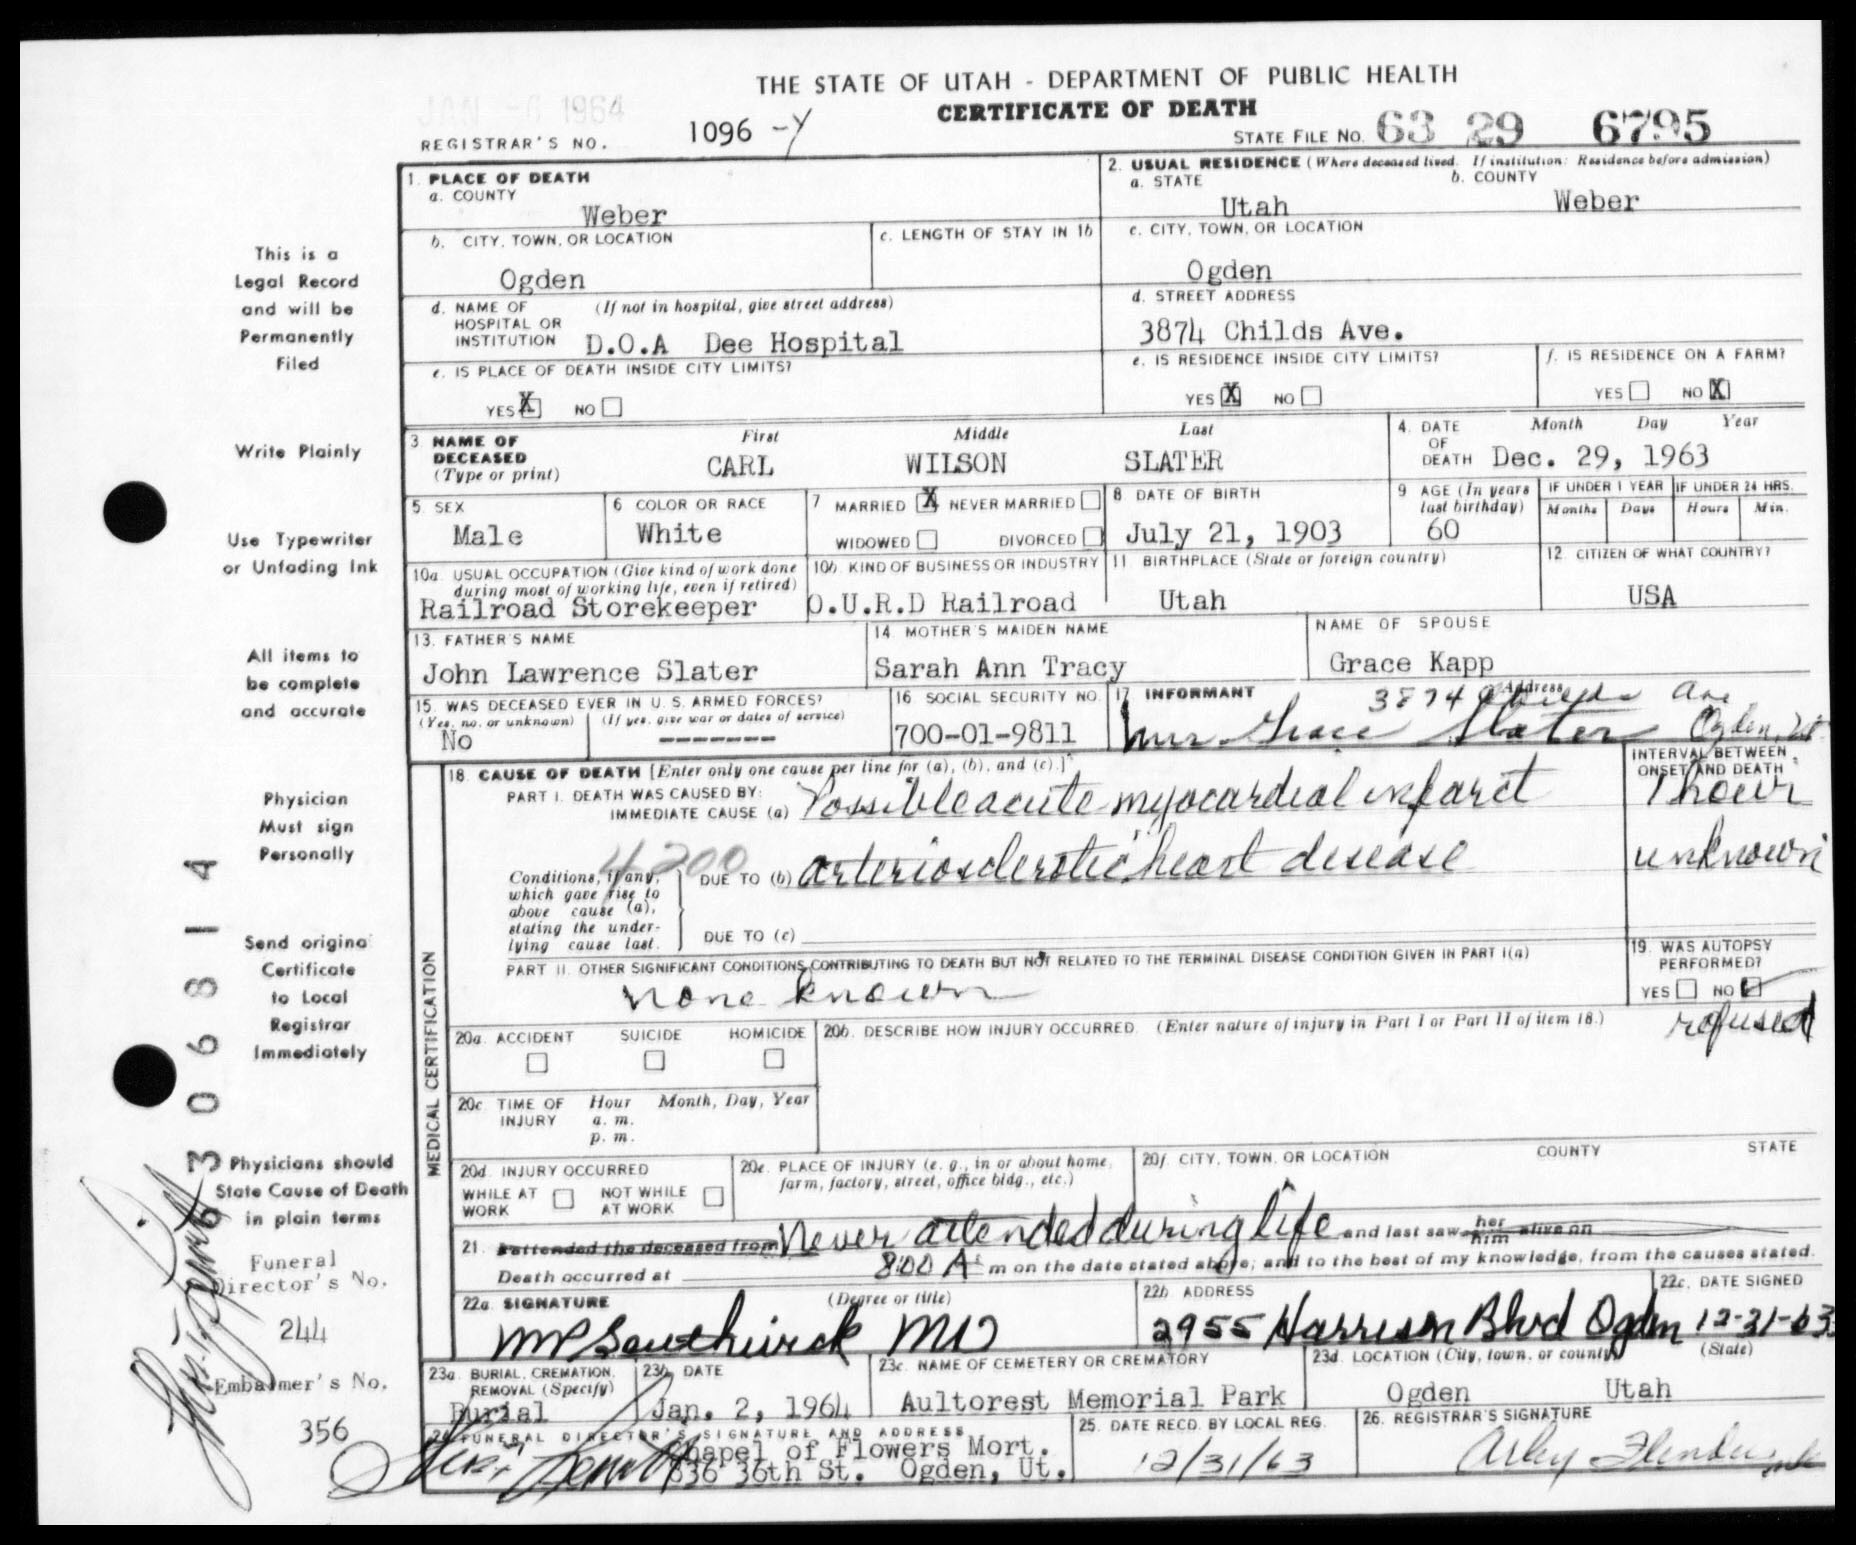 THE STATE OF UTAH - DEPARTMENT OF PUBLIC HEALTH
CERTIFICATE OF DEATH
JAN -6 1964
REGISTRAR'S NO. 1096 -Y
STATE FILE NO. 63 29 6795
This is a
Legal Record
and will be
Permanently
Filed
Write Plainly
Use Typewriter
or Unfading Ink
All items to
be complete
and accurate
Physician
Must sign
Personally
Send origina
Certificate
to Local
Registrar
Immediately
Physicians should
State Cause of Death
in plain terms
Funeral
Director's No.
244
Embalmer's No.
356
1. PLACE OF DEATH
a. COUNTY
Weber
b. CITY, TOWN, OR LOCATION
Ogden
c. LENGTH OF STAY IN 1b
d. NAME OF HOSPITAL OR INSTITUTION (If not in hospital, give street address)
D.O.A Dee Hospital
e. IS PLACE OF DEATH INSIDE CITY LIMITS?
YES X NO
2. USUAL RESIDENCE (Where deceased lived. If institution: Residence before admission)
a. STATE
Utah
b. COUNTY
Weber
c. CITY, TOWN, OR LOCATION
Ogden
d. STREET ADDRESS
3874 Childs Ave.
e. IS RESIDENCE INSIDE CITY LIMITS?
YES X NO
f. IS RESIDENCE ON A FARM?
YES NO X
3. NAME OF DECEASED (Type or print)
First Middle Last
CARL WILSON SLATER
4. DATE OF DEATH Month Day Year
Dec. 29, 1963
5. SEX
Male
6 COLOR OR RACE
White
7 MARRIED X NEVER MARRIED
WIDOWED DIVORCED
8 DATE OF BIRTH
July 21, 1903
9 AGE (In years last birthday)
60
IF UNDER 1 YEAR
Months Days
IF UNDER 24 HRS.
Hours Min.
10a. USUAL OCCUPATION (Give kind of work done during most of working life, even if retired)
Railroad Storekeeper
10b. KIND OF BUSINESS OR INDUSTRY
O.U.R.D Railroad
11. BIRTHPLACE (State or foreign country)
Utah
12. CITIZEN OF WHAT COUNTRY?
USA
13. FATHER'S NAME
John Lawrence Slater
14. MOTHER'S MAIDEN NAME
Sarah Ann Tracy
NAME OF SPOUSE
Grace Kapp
15. WAS DECEASED EVER IN U. S. ARMED FORCES?
(Yes, no, or unknown) (If yes, give war or dates of service)
No -------
16 SOCIAL SECURITY NO.
700-01-9811
17. INFORMANT Address
3874 Childs Ave
Mrs Grace Slater Ogden, Ut.
MEDICAL CERTIFICATION
18. CAUSE OF DEATH [Enter only one cause per line for (a), (b), and (c).]
INTERVAL BETWEEN ONSET AND DEATH
PART I. DEATH WAS CAUSED BY:
IMMEDIATE CAUSE (a) Possible acute myocardial infarct
1 hour
4200
Conditions, if any, which gave rise to above cause (a), stating the underlying cause last.
DUE TO (b) arteriosclerotic heart disease
unknown
DUE TO (c)
PART II. OTHER SIGNIFICANT CONDITIONS CONTRIBUTING TO DEATH BUT NOT RELATED TO THE TERMINAL DISEASE CONDITION GIVEN IN PART I(a)
none known
19. WAS AUTOPSY PERFORMED?
YES NO
refused
20a. ACCIDENT SUICIDE HOMICIDE
20b. DESCRIBE HOW INJURY OCCURRED. (Enter nature of injury in Part I or Part II of item 18.)
20c TIME OF INJURY Hour Month, Day, Year
a. m.
p. m.
20d. INJURY OCCURRED
WHILE AT WORK NOT WHILE AT WORK
20e. PLACE OF INJURY (e. g., in or about home, farm, factory, street, office bldg., etc.)
20f. CITY, TOWN, OR LOCATION COUNTY STATE
21. I attended the deceased from Never attended during life and last saw her him alive on
Death occurred at 8:00 A m on the date stated above; and to the best of my knowledge, from the causes stated.
22a. SIGNATURE (Degree or title)
MP Southwick MD
22b. ADDRESS
2955 Harrison Blvd Ogden
22c. DATE SIGNED
12-31-63
23a. BURIAL, CREMATION, REMOVAL (Specify)
Burial
23b. DATE
Jan. 2, 1964
23c. NAME OF CEMETERY OR CREMATORY
Aultorest Memorial Park
23d. LOCATION (City, town, or county) (State)
Ogden Utah
24. FUNERAL DIRECTOR'S SIGNATURE AND ADDRESS
Chapel of Flowers Mort.
836 36th St. Ogden, Ut.
25. DATE RECD. BY LOCAL REG.
12/31/63
26. REGISTRAR'S SIGNATURE